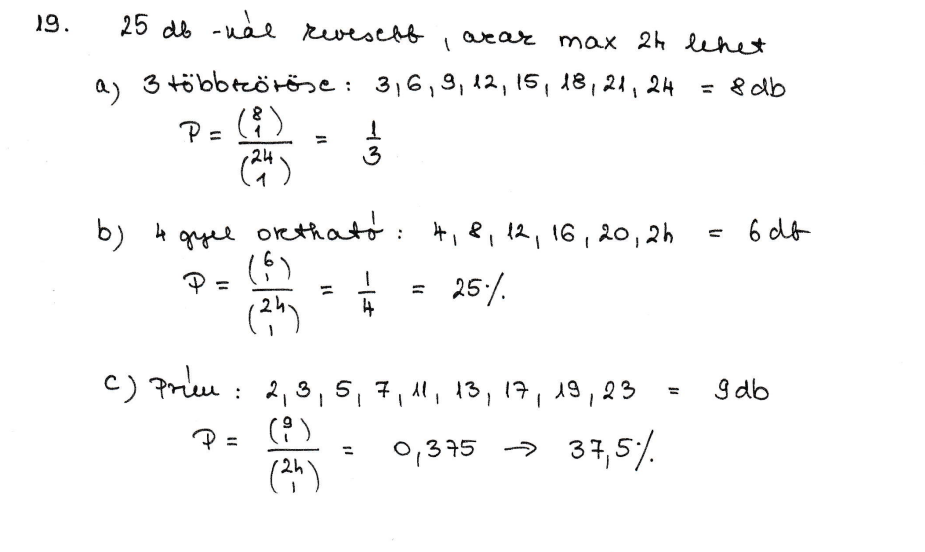 19. 25 db -nál kevesebb, azaz max 24 lehet
a) 3 többszöröse: 3, 6, 9, 12, 15, 18, 21, 24 = 8 db
P = (8 1) / (24 1) = 1/3
b) 4 gyel osztható: 4, 8, 12, 16, 20, 24 = 6 db
P = (6 1) / (24 1) = 1/4 = 25%.
c) Prím: 2, 3, 5, 7, 11, 13, 17, 19, 23 = 9 db
P = (9 1) / (24 1) = 0,375 → 37,5%.